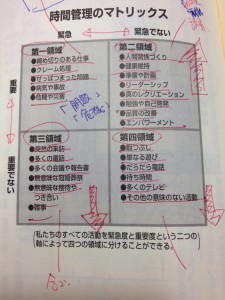 時間管理のマトリックス
緊急
緊急でない
重要
第一領域
●締め切りのある仕事
●クレーム処理
●せっぱつまった問題
●病気や事故
●危機や災害
第二領域
●人間関係づくり
●健康維持
●準備や計画
●リーダーシップ
●真のレクリエーション
●勉強や自己啓発
●品質の改善
●エンパワーメント
「問題」
「危機」
重要でない
第三領域
●突然の来訪
●多くの電話
●多くの会議や報告書
●無意味な冠婚葬祭
●無意味な接待や
つき合い
●雑事
第四領域
●暇つぶし
●単なる遊び
●だらだら電話
●待ち時間
●多くのテレビ
●その他の意味のない活動
(私たちのすべての活動を緊急度と重要度という二つの
軸によって四つの領域に分けることができる。